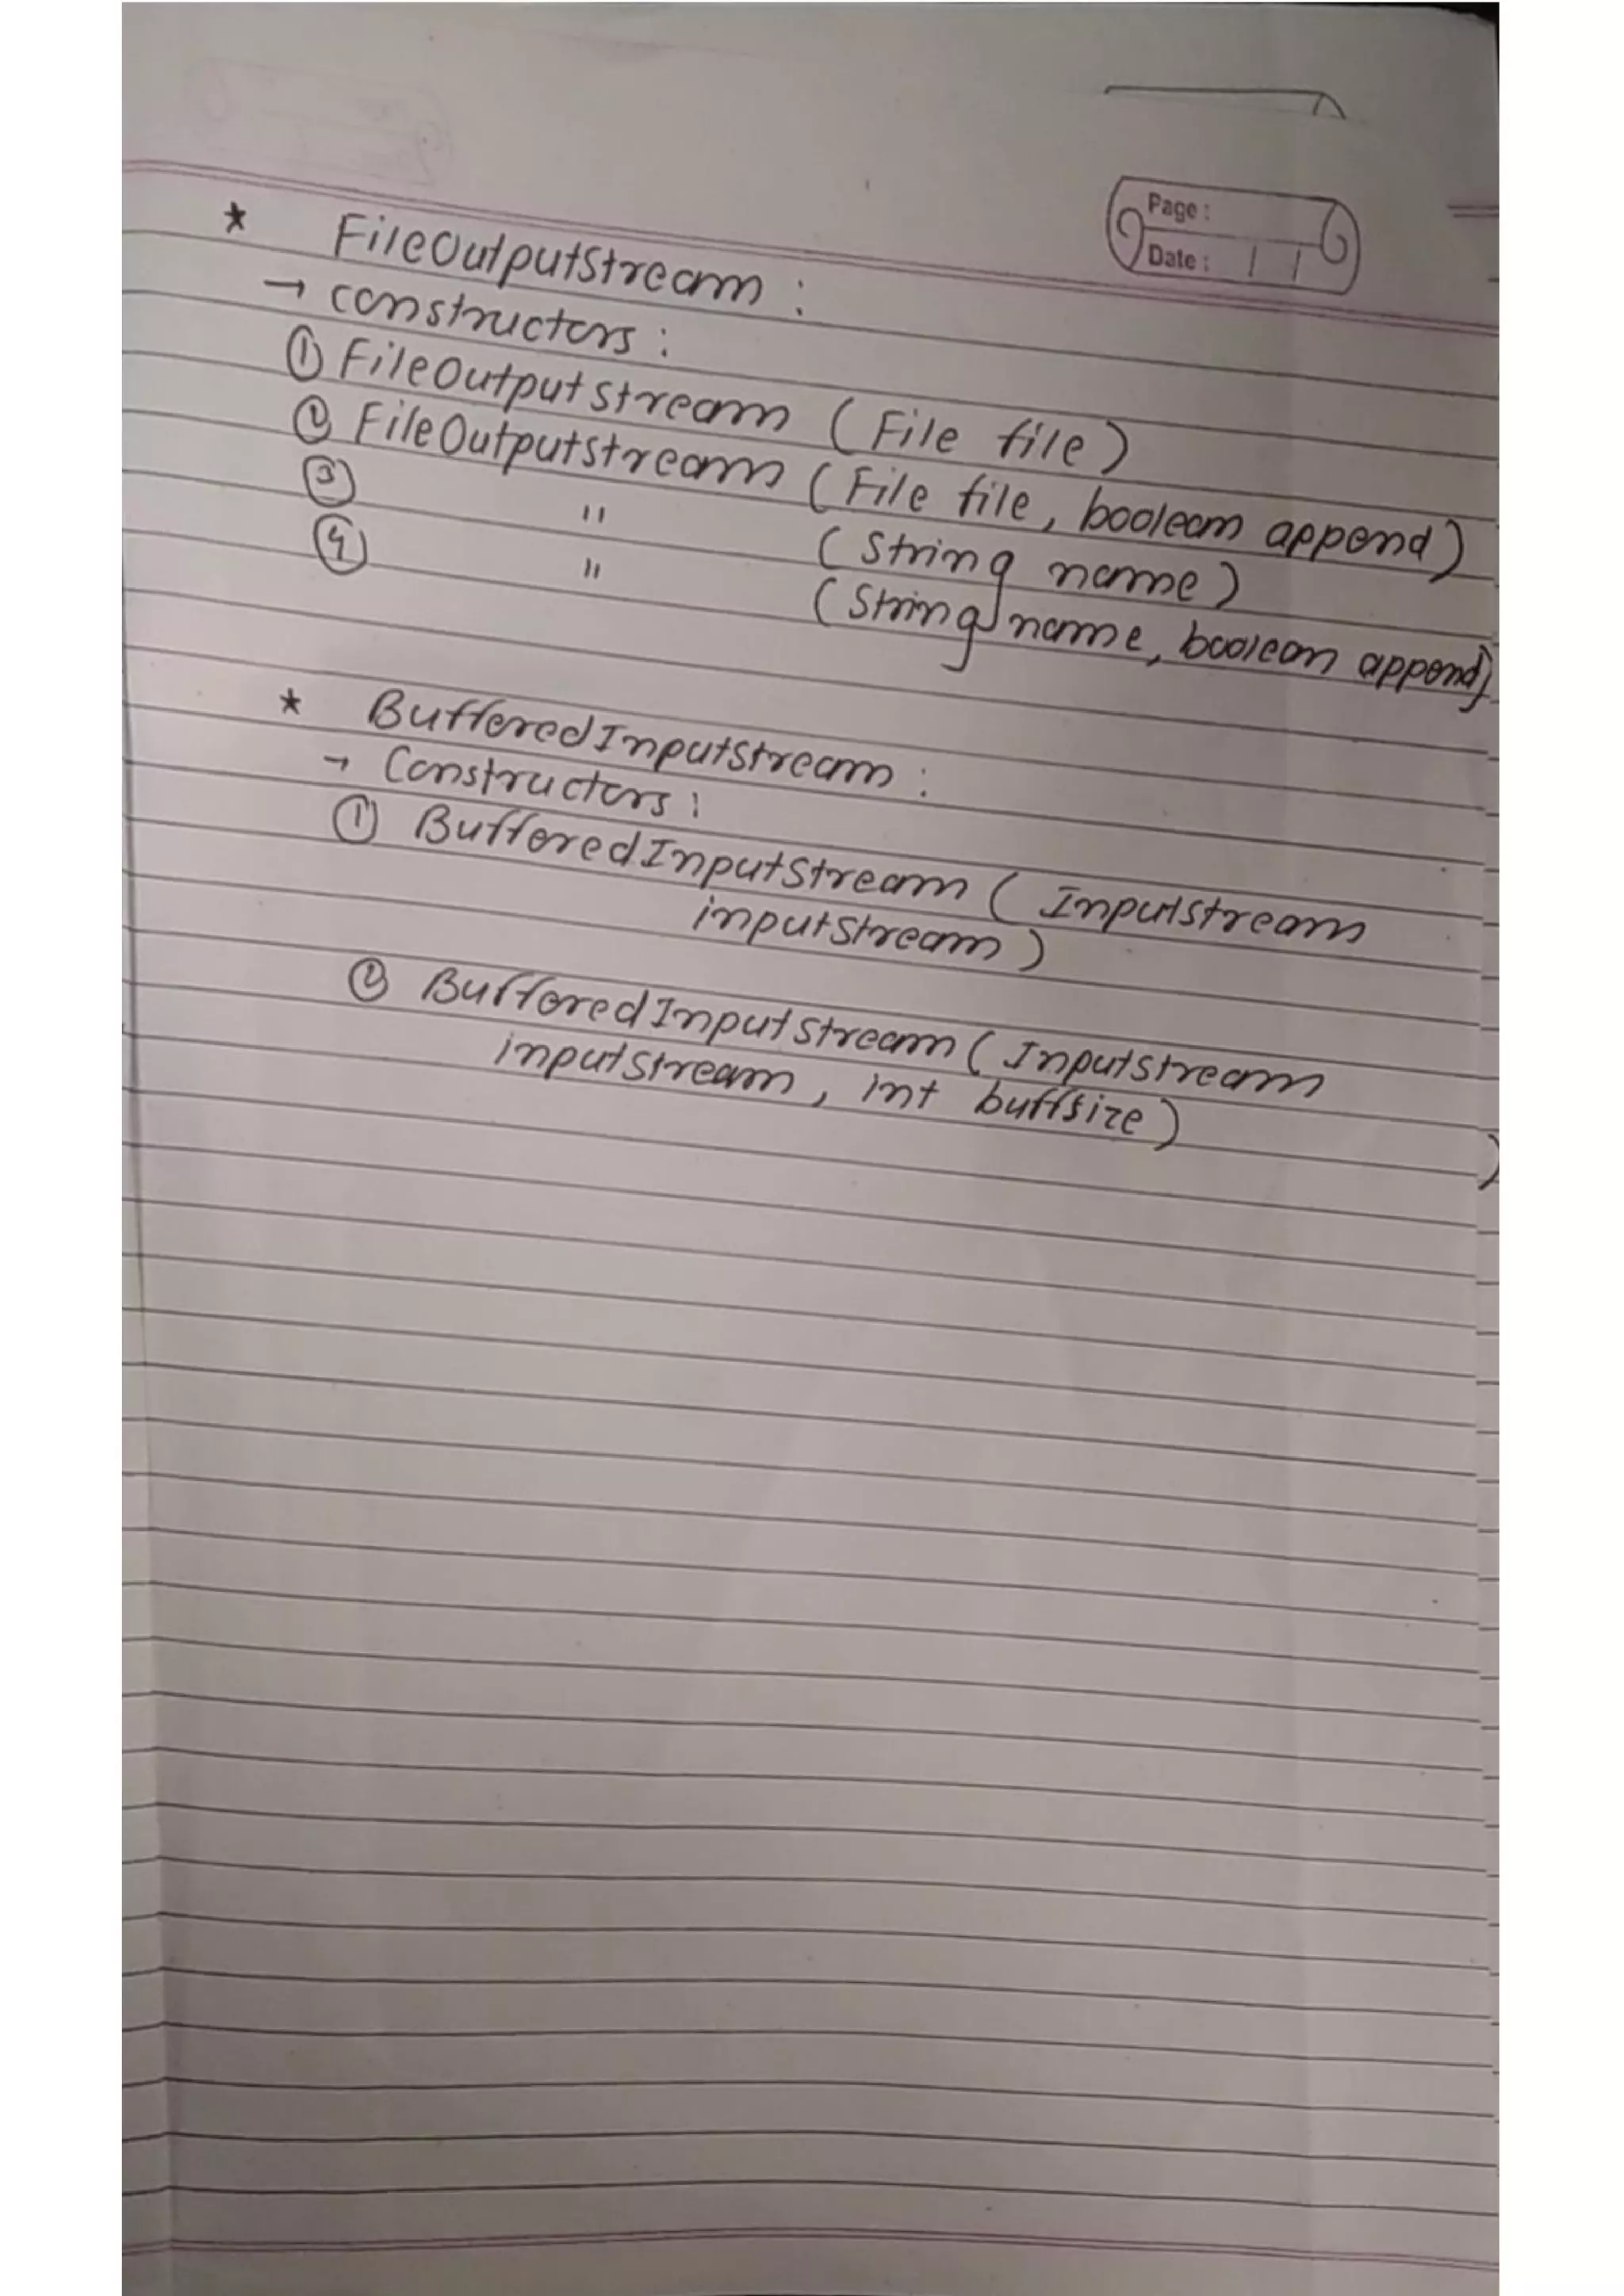 Page :
Date : / /
* FileOutputStream :
→ constructors :
① FileOutputStream (File file)
② FileOutputStream (File file, boolean append)
③ " (String name)
④ " (String name, boolean append)
* BufferedInputStream :
→ Constructors :
① BufferedInputStream ( InputStream
inputStream )
② BufferedInputStream ( InputStream
inputStream, int buffsize )